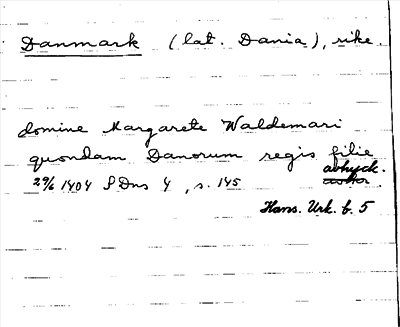 Danmark (lat. Dania), rike.
domine Margarete Waldemari
quondam Danorum regis filie
29/6 1404 SDns 4, s. 145 avhyck.
Hans. Urk. b. 5